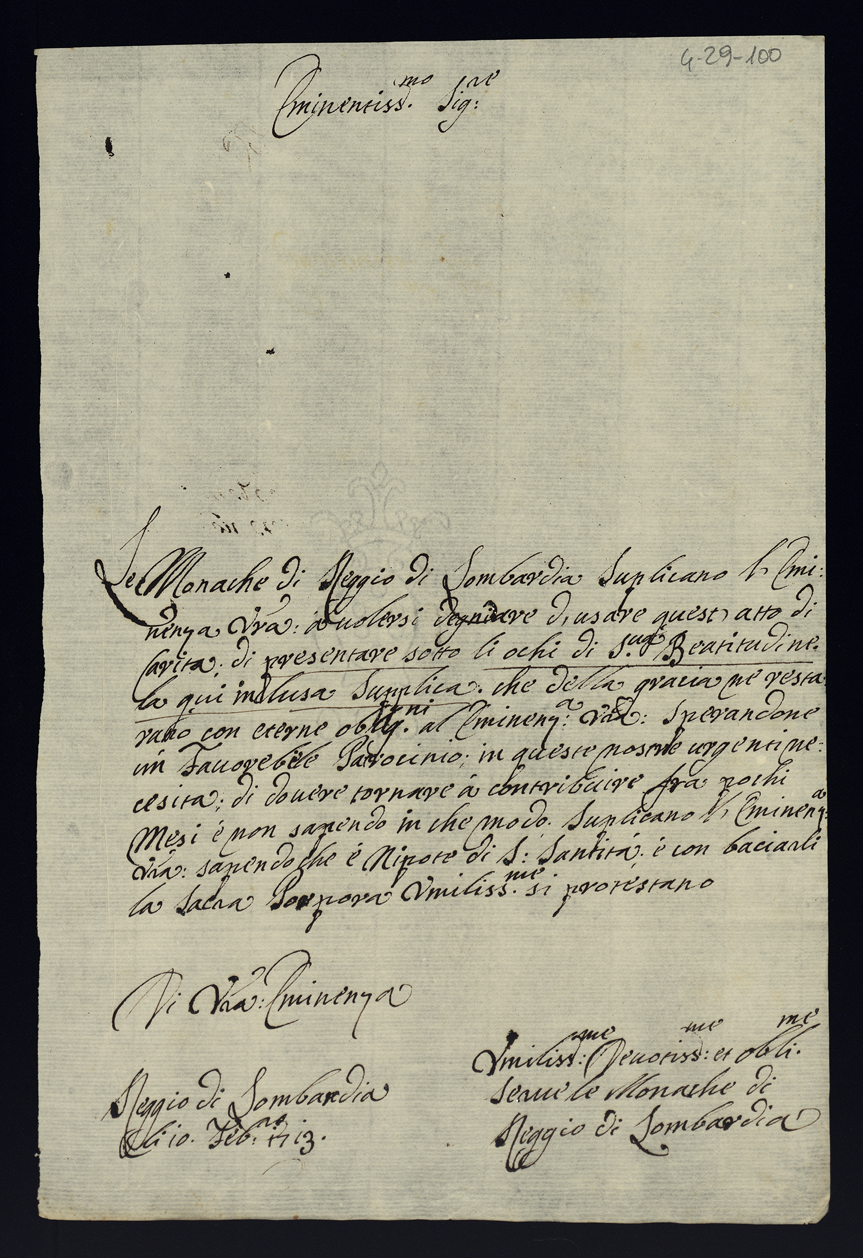 4-29-100
Eminentiss.mo Sig:re
Le Monache di Reggio di Lombardia Suplicano l'Emi:
nenza Vra: à volersi degniare d'usare quest'atto di
Carita; di presentare sotto li ochi di S.ua Beatitudine.
la qui inclusa Supplica. che della gracia ne resta
rano con eterne oblig.ni al Eminenz:a Vra: Sperandone
un Favorebile Patrocinio; in queste nostre urgenti ne:
cesita; di dovere tornare à contribuire fra pochi
Mesi é non sapendo in che modo. Suplicano l'Eminenz:a
Vra: sapendo che é Nipote di S: Santitá. é con baciarli
la Sacra Porpora Vmiliss.me si protestano
Di Vra: Eminenza
Vmiliss:me Devotiss:me et obli.me
Serve le Monache di
Reggio di Lombardia
Reggio di Lombardia
li 10. Feb.ro 1713.